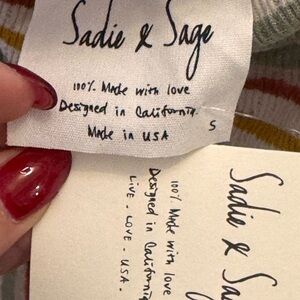 Sadie & Sage
100% Made with love
Designed in California.
Made in USA
S
Sadie & Sa
100% Made with love
Designed in Californi
LIVE - LOVE - USA.